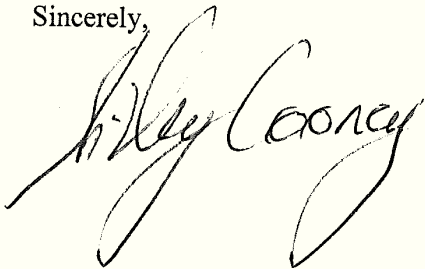 Sincerely,
Shirley Cooney